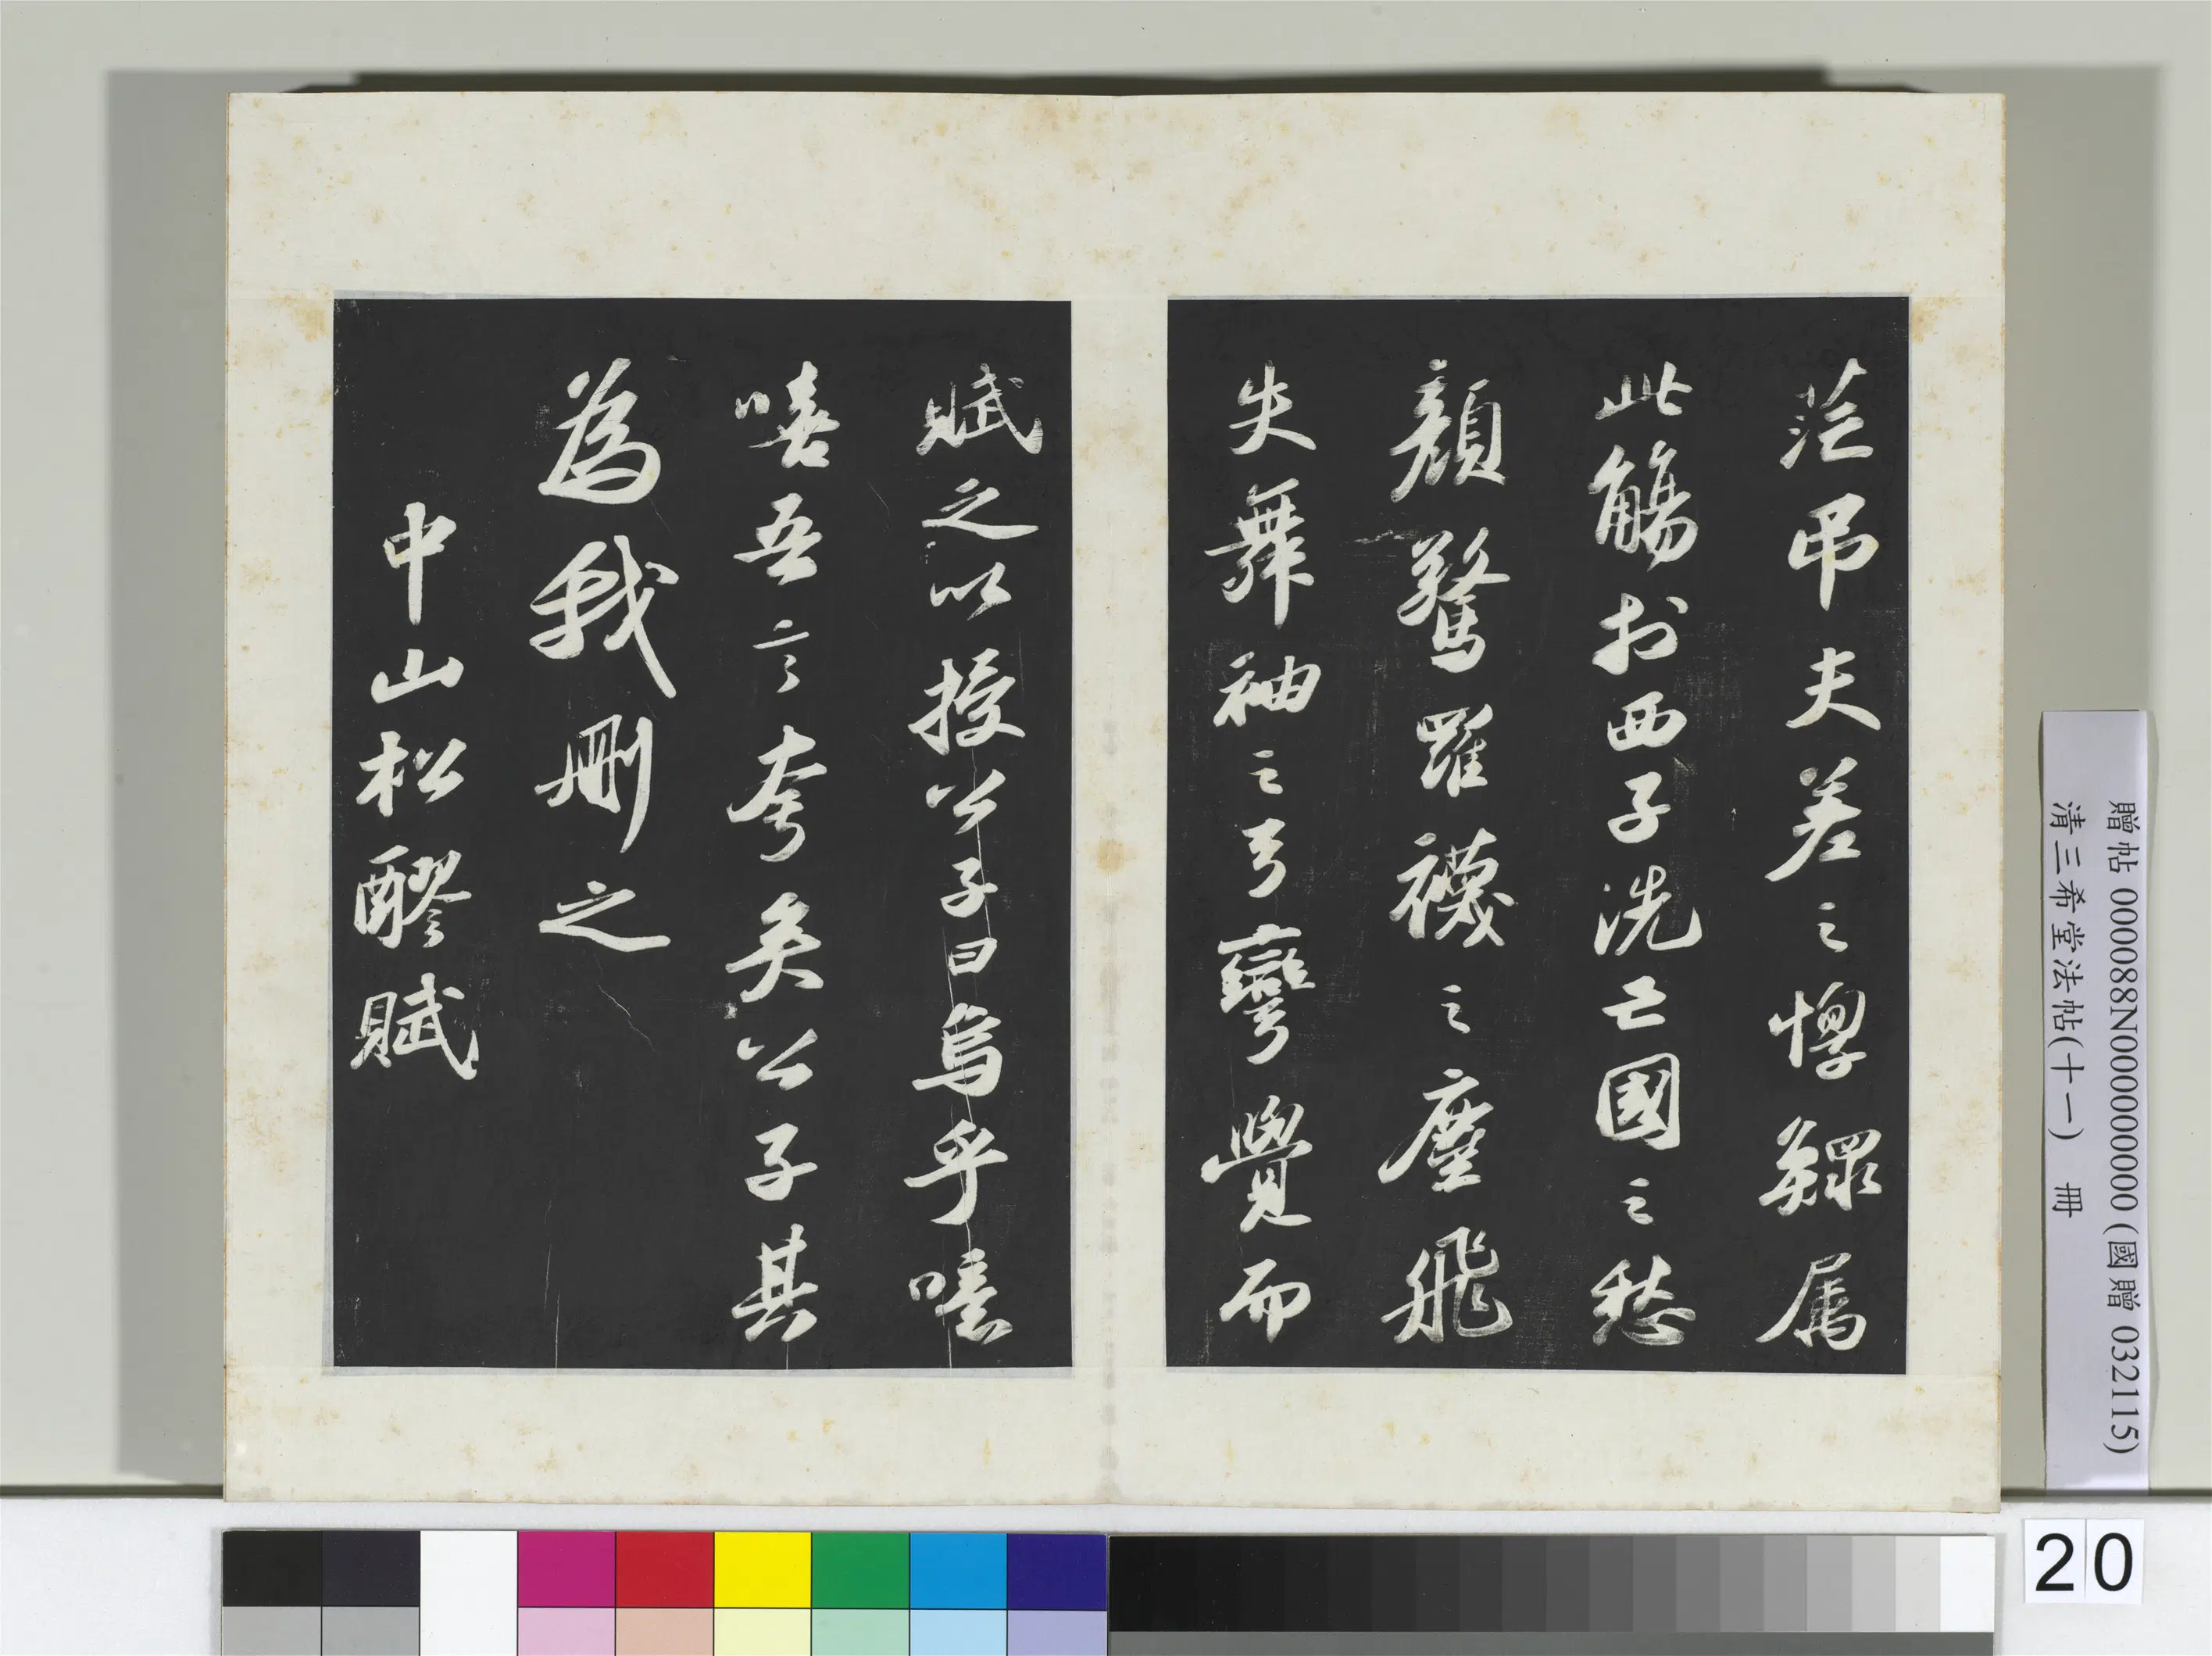 茫弔夫差之惸鰥属
此觴於西子洗亡國之愁
顏驚羅襪之塵飛
失舞袖之弓彎覺而
賦之以授公子曰烏乎噫
嘻吾言夸矣公子其
為我刪之
中山松醪賦
贈帖 000088N000000000 (國贈 032115)
清三希堂法帖(十一) 冊
20